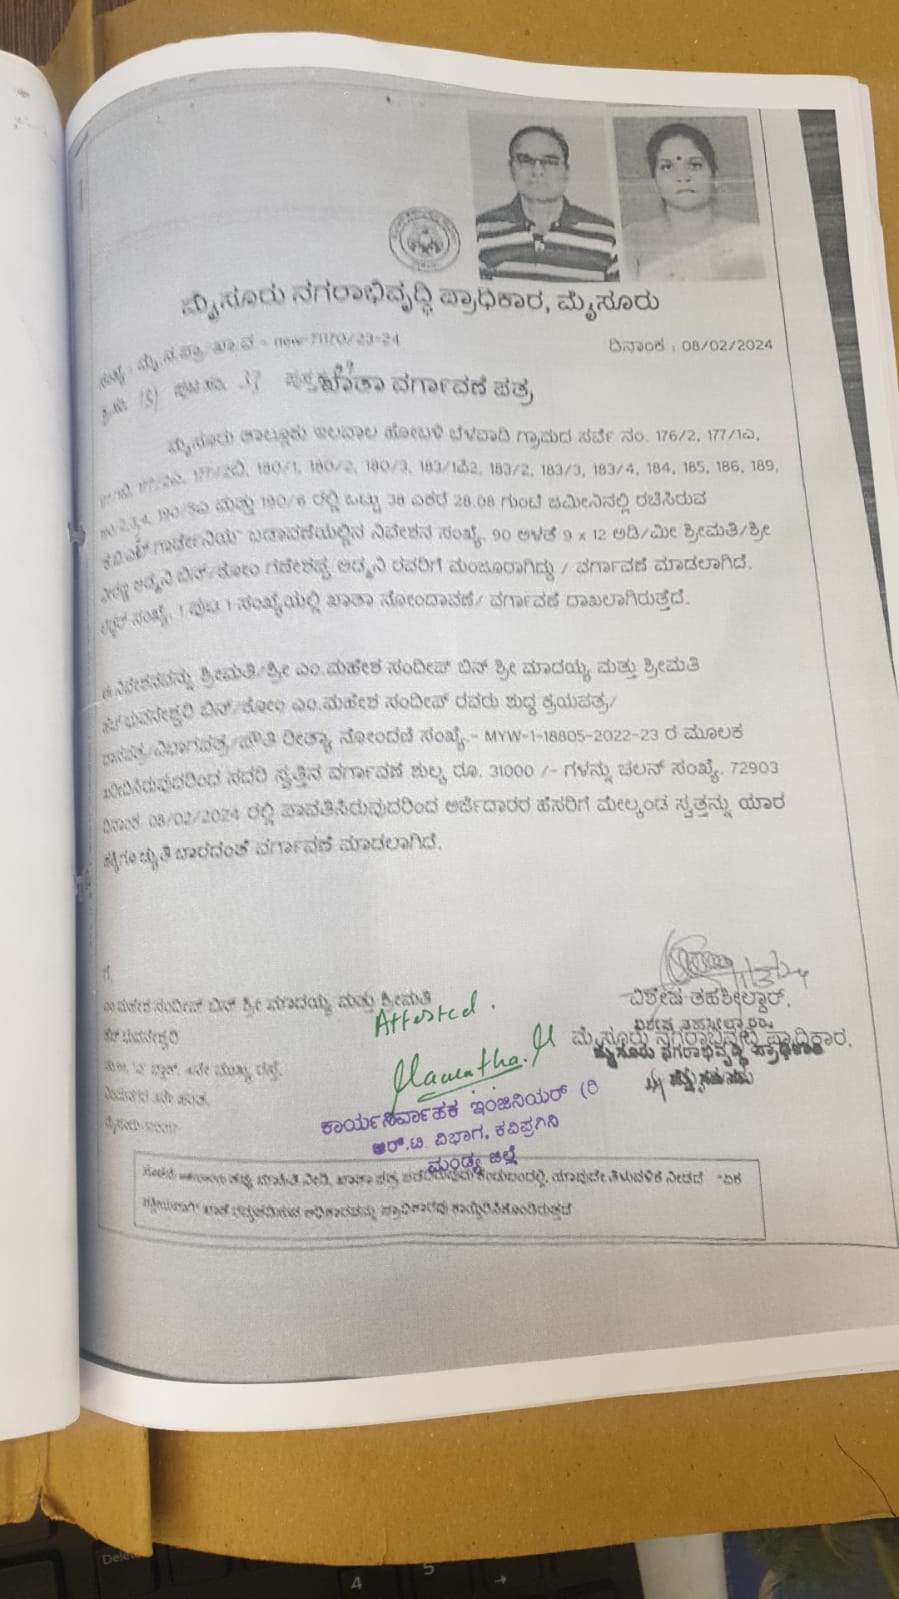 ಮೈಸೂರು ನಗರಾಭಿವೃದ್ಧಿ ಪ್ರಾಧಿಕಾರ, ಮೈಸೂರು
ಸಂಖ್ಯೆ: ಮೈ.ನ.ಪ್ರಾ/ಖಾ.ವ - new-71170/23-24
ದಿನಾಂಕ : 08/02/2024
ಖಾತಾ ವರ್ಗಾವಣೆ ಪತ್ರ
ಮೈಸೂರು ತಾಲ್ಲೂಕು ಇಲವಾಲ ಹೋಬಳಿ ಬೆಳವಾಡಿ ಗ್ರಾಮದ ಸರ್ವೆ ನಂ. 176/2, 177/1ಎ,
177/2ಬಿ, 180/1, 180/2, 180/3, 183/1ಎ2, 183/2, 183/3, 183/4, 184, 185, 186, 189,
190/5ಎ ಮತ್ತು 190/6 ರಲ್ಲಿ ಒಟ್ಟು 38 ಎಕರೆ 28.08 ಗುಂಟೆ ಜಮೀನಿನಲ್ಲಿ ರಚಿಸಿರುವ
ಗಾರ್ಡೇನಿಯ" ಬಡಾವಣೆಯಲ್ಲಿನ ನಿವೇಶನ ಸಂಖ್ಯೆ. 90 ಅಳತೆ 9 x 12 ಅಡಿ/ಮೀ ಶ್ರೀಮತಿ/ಶ್ರೀ
ಬಿನ್/ಕೋಂ ಗದಿಗೆಪ್ಪ ಆದ್ಮನಿ ರವರಿಗೆ ಮಂಜೂರಾಗಿದ್ದು / ವರ್ಗಾವಣೆ ಮಾಡಲಾಗಿದೆ.
ಸಂಖ್ಯೆ. 1 ಪುಟ 1 ಸಂಖ್ಯೆಯಲ್ಲಿ ಖಾತಾ ನೋಂದಾವಣೆ/ ವರ್ಗಾವಣೆ ದಾಖಲಾಗಿರುತ್ತದೆ.
ಈ ನಿವೇಶನವನ್ನು ಶ್ರೀಮತಿ/ಶ್ರೀ ಎಂ.ಮಹೇಶ ಸಂದೀಪ್ ಬಿನ್ ಶ್ರೀ ಮಾದಯ್ಯ ಮತ್ತು ಶ್ರೀಮತಿ
ಹೆಚ್ ಭುವನೇಶ್ವರಿ ಬಿನ್/ಕೋಂ ಎಂ.ಮಹೇಶ ಸಂದೀಪ್ ರವರು ಶುದ್ಧ ಕ್ರಯಪತ್ರ/
ದಾನಪತ್ರ/ವಿಭಾಗಪತ್ರ/ಪೌತಿ ರೀತ್ಯಾ ನೋಂದಣಿ ಸಂಖ್ಯೆ.- MYW-1-18805-2022-23 ರ ಮೂಲಕ
ಖರೀದಿಸಿರುವುದರಿಂದ ಸದರಿ ಸ್ವತ್ತಿನ ವರ್ಗಾವಣೆ ಶುಲ್ಕ ರೂ. 31000 /- ಗಳನ್ನು ಚಲನ್ ಸಂಖ್ಯೆ. 72903
ದಿನಾಂಕ 08/02/2024 ರಲ್ಲಿ ಪಾವತಿಸಿರುವುದರಿಂದ ಅರ್ಜಿದಾರರ ಹೆಸರಿಗೆ ಮೇಲ್ಕಂಡ ಸ್ವತ್ತನ್ನು ಯಾರ
ಹಕ್ಕಿಗೂ ಚ್ಯುತಿ ಬಾರದಂತೆ ವರ್ಗಾವಣೆ ಮಾಡಲಾಗಿದೆ.
ಗೆ,
ಎಂ.ಮಹೇಶ ಸಂದೀಪ್ ಬಿನ್ ಶ್ರೀ ಮಾದಯ್ಯ ಮತ್ತು ಶ್ರೀಮತಿ
ಹೆಚ್ ಭುವನೇಶ್ವರಿ
ಮೈಸೂರು-570017
Attested.
ಕಾರ್ಯನಿರ್ವಾಹಕ ಇಂಜಿನಿಯರ್ (ರಿ
ಆರ್.ಟಿ ವಿಭಾಗ, ಕವಿಪ್ರನಿನಿ
ಮಂಡ್ಯ ಜಿಲ್ಲೆ
ವಿಶೇಷ ತಹಶೀಲ್ದಾರ್,
ವಿಶೇಷ ತಹಸೀಲ್ದಾರರು
ಮೈಸೂರು ನಗರಾಭಿವೃದ್ಧಿ ಪ್ರಾಧಿಕಾರ,
ಮೈಸೂರು ನಗರಾಭಿವೃದ್ಧಿ ಪ್ರಾಧಿಕಾರ
ಮೈಸೂರು
ತಪ್ಪು ಮಾಹಿತಿ ನೀಡಿ, ಖಾತಾ ಪತ್ರ ಕಂಡುಬಂದಲ್ಲಿ, ಯಾವುದೇ ತಿಳುವಳಿಕೆ ನೀಡದೆ "ಏಕ
ಪಕ್ಷೀಯವಾಗಿ" ಖಾತೆ ರದ್ದುಪಡಿಸುವ ಅಧಿಕಾರವನ್ನು ಪ್ರಾಧಿಕಾರವು ಕಾಯ್ದಿರಿಸಿಕೊಂಡಿರುತ್ತದೆ
Delete
4
5